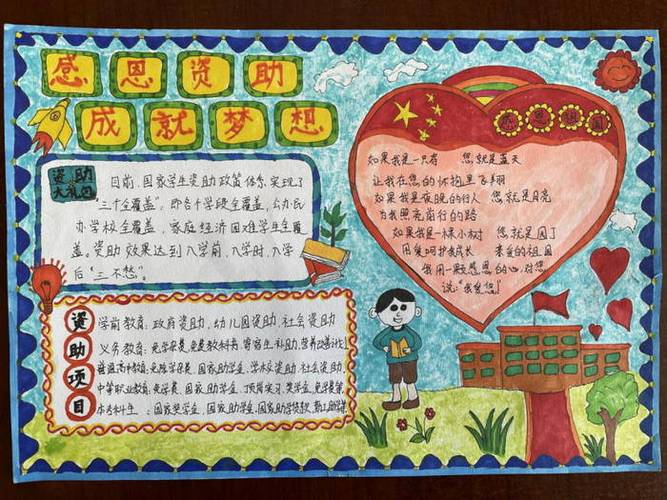 感恩资助
成就梦想
资助
大礼包
目前,国家学生资助政策体系实现了
“三个全覆盖”。即各个学段全覆盖,公办民
办学校全覆盖,家庭经济困难学生全覆
盖。资助效果达到入学前,入学时,入学
后“三不愁”。
资助项目
学前教育:政府资助,幼儿园资助,社会资助
义务教育:免学杂费,免费教科书,寄宿生补助,营养改善计划
普通高中教育:免除学杂费,国家助学金,学校资助,社会资助,
中等职业教育:免学费,国家助学金,顶岗实习,奖学金,免学费等
本专科生,国家奖学金,国家助学金,国家助学贷款,勤工助学等
感恩祖国
如果我是一只有 您就是蓝天
让我在您的怀抱里飞翔
如果我是夜晚的行人 您就是月亮
为我照亮前行的路
如果我是一棵小树 您就是园丁
用爱呵护我成长 亲爱的祖国
我用一颗感恩的心,对您
说:“我爱您!”